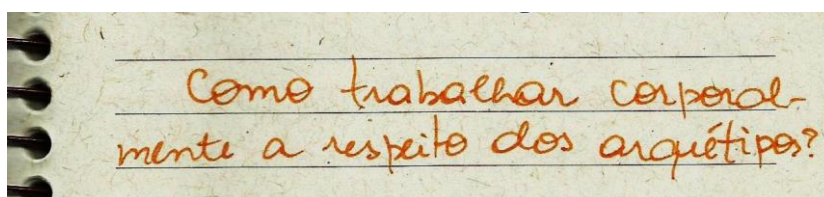 Como trabalhar corporal-
mente a respeito dos arquétipos?